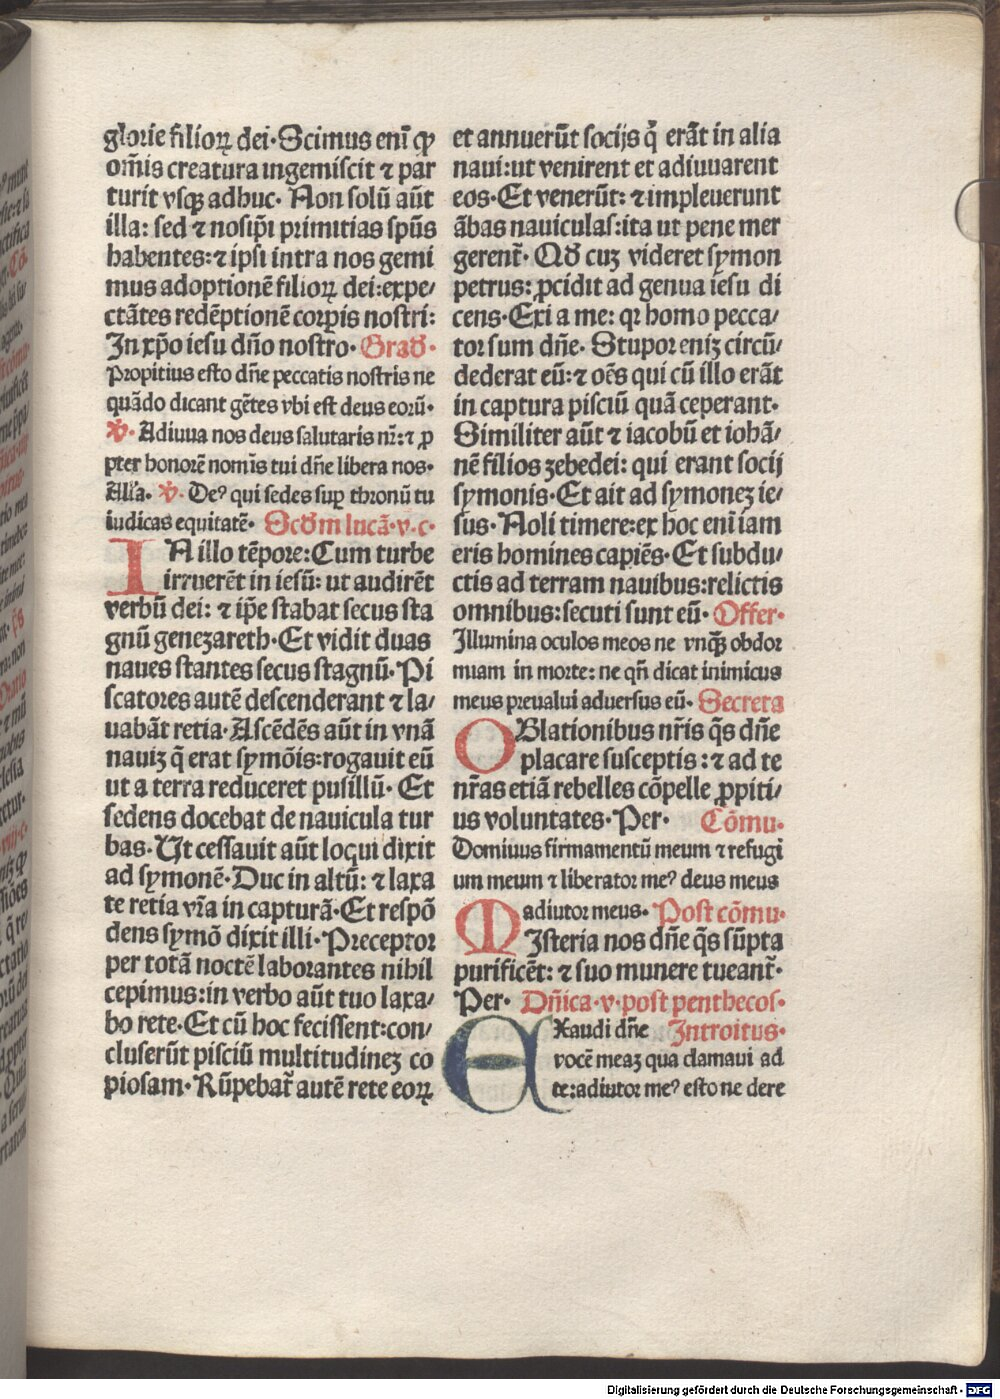 glorie filioꝝ dei·Scimus enī ꝙ
om̄is creatura ingemiscit ⁊ par
turit vsqꝫ adhuc· Non solū aūt
illa: sed ⁊ nosip̄i primitias sp̄us
habentes:⁊ ipsi intra nos gemi
mus adoptionē filioꝝ dei:expe⸗
ctātes redēptionē corp̄is nostri:
In xp̄o iesu dn̄o nostro· Grad̄·
Propitius esto dn̄e peccatis nostris ne
quādo dicant gētes vbi est deus eorū·
℣· Adiuua nos deus salutaris nr̄:⁊ ꝓ
pter honorē nomīs tui dn̄e libera nos·
All'a· ℣· De⁹ qui sedes suꝑ thronū tu
iudicas equitatē· Scd̄m lucā·v·c·
IN illo tēpore:Cum turbe
irruerēt in iesū: ut audirēt
verbū dei: ⁊ ip̄e stabat secus sta
gnū genezareth·Et vidit duas
naues stantes secus stagnū·Pi
scatores autē descenderant ⁊ la⸗
uabāt retia·Ascēdēs aūt in vnā
nauiz q̄ erat symōis:rogauit eū
ut a terra reduceret pusillū· Et
sedens docebat de nauicula tur
bas·Ut cessauit aūt loqui dixit
ad symonē·Duc in altū: ⁊ laxa
te retia vr̄a in capturā·Et respō
dens symō dixit illi·Preceptor
per totā noctē laborantes nihil
cepimus:in verbo aūt tuo laxa⸗
bo rete·Et cū hoc fecissent:con⸗
cluserūt pisciū multitudinez co
piosam·Rūpebat̄ autē rete eoꝝ
et annuerūt socijs q̄ erāt in alia
naui:ut venirent et adiuuarent
eos·Et venerūt: ⁊ impleuerunt
ābas nauiculas:ita ut pene mer
gerent̄· Qd̄ cuz videret symon
petrus: ꝓcidit ad genua iesu di
cens·Exi a me: qr homo pecca⸗
tor sum dn̄e· Stupor eniz circū⸗
dederat eū:⁊ oēs qui cū illo erāt
in captura pisciū quā ceperant·
Similiter aūt ⁊ iacobū et iohā⸗
nē filios zebedei: qui erant socij
symonis·Et ait ad symonez ie⸗
sus·Noli timere:ex hoc enī iam
eris homines capiēs·Et subdu⸗
ctis ad terram nauibus:relictis
omnibus:secuti sunt eū· Offer·
Illumina oculos meos ne vnqꝫ̄ obdor
miam in morte: ne qn̄ dicat inimicus
meus preualui aduersus eū· Secreta
OBlationibus nr̄is q̄s dn̄e
placare susceptis :⁊ ad te
nr̄as etiā rebelles cōpelle ꝓpiti⸗
us voluntates·Per· Cōmu·
Domiuus firmamentū meum ⁊ refugi
um meum ⁊ liberator me⁹ deus meus
adiutor meus· Post cōmu·
MIsteria nos dn̄e q̄s sūpta
purificēt: ⁊ suo munere tueant̄·
Per· Dn̄ica·v·post penthecos·
EXaudi dn̄e Introitus·
vocē meaz qua clamaui ad
te:adiutor me⁹ esto ne dere
Digitalisierung gefördert durch die Deutsche Forschungsgemeinschaft - DFG